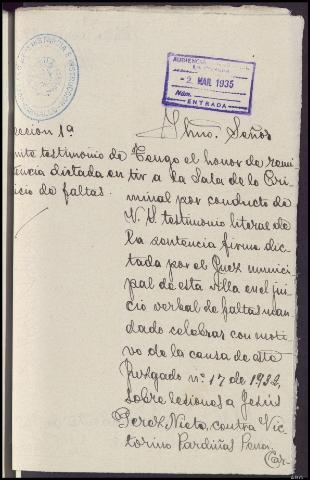 AUDIENCIA
2 MAR 1935
Núm.
ENTRADA
Iltmo. Señor
sección 1ª
mite testimonio de
tencia dictada en
icio de faltas.
Tengo el honor de remi
tir a la Sala de lo Cri
minal por conducto de
V. S. testimonio literal de
la sentencia firme dic
tada por el Juez munici
pal de esta villa en el jui
cio verbal de faltas man
dado celebrar con moti
vo de la causa de este
Juzgado nº 17 de 1932,
sobre lesiones a Jesús
Perez Nieto, contra Vic
torino Pardiñas Pena.
Car-